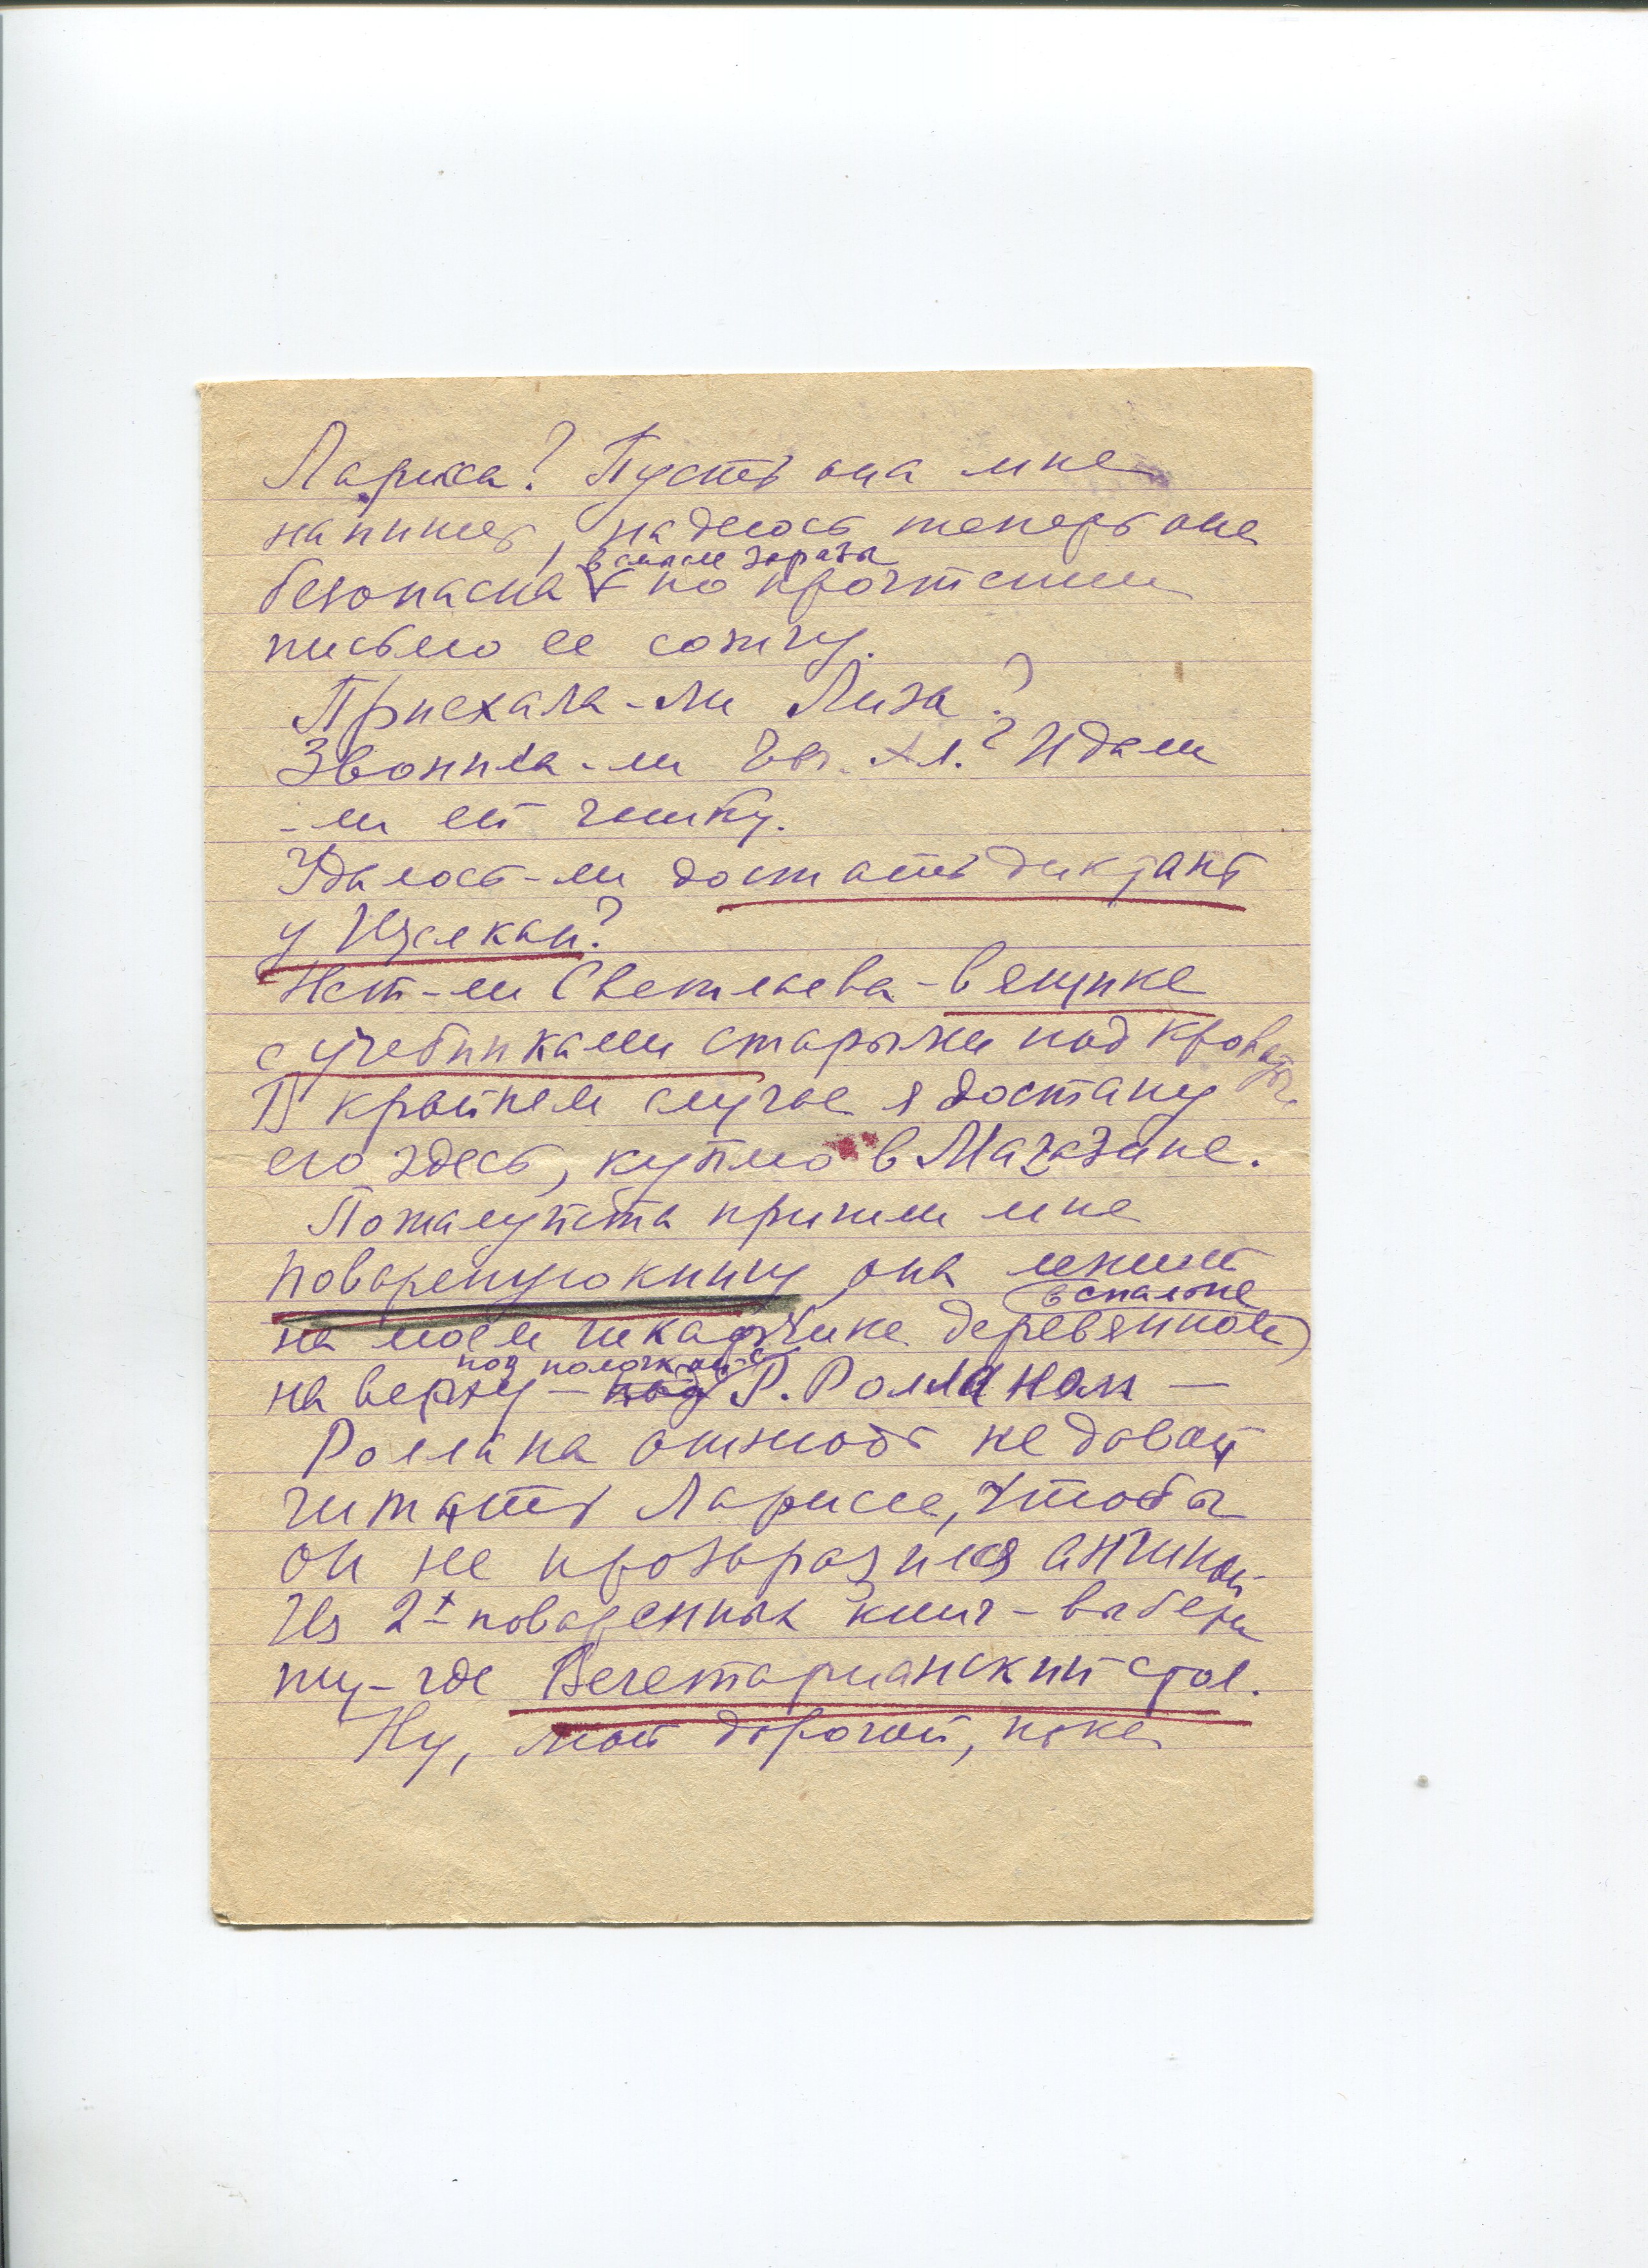 Лариса? Пусть она мне
напишет, надеюсь теперь она
в смысле заразы
безопасна – по прочтении
письмо ее сожгу.
Приехала-ли Лиза?
Звонила-ли Ев. Ал.? И дали
-ли ей
Удалось-ли достать диктант
у
Нет-ли Светлаева – в ящике
с учебниками старыми под кроватью.
В крайнем случае я достану
его здесь, куплю в Магазине.
Пожалуйста пришли мне
поваренную книгу, она лежит
в спальне
на моем шкафчике деревянном
под полочкой с
на верху – под Р. Ролланом –
Роллана отнюдь не давай
читать Ларисе, чтобы
он не прозаразился ангиной
Из 2х поваренных книг – выбери
ту – где Вегетарианский стол.
Ну, мой дорогой, пока